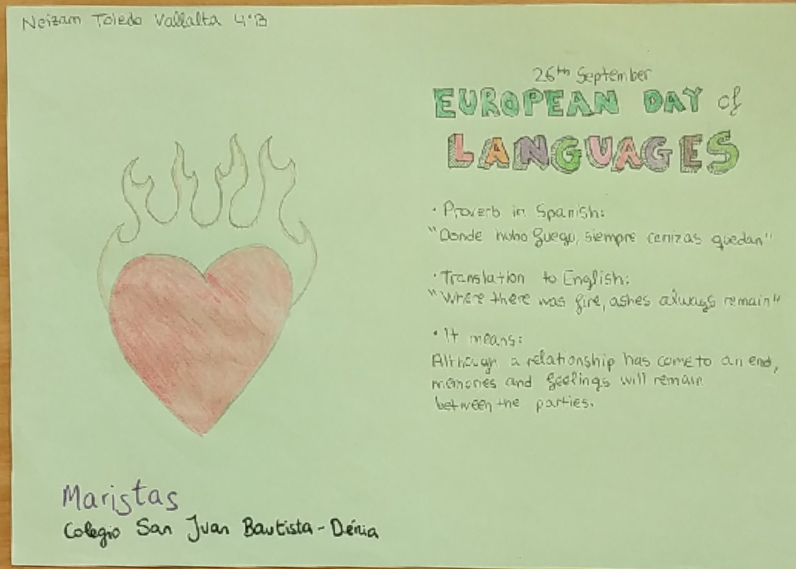 Neizam Toledo Vallalta 4ºB
26th September
EUROPEAN DAY of
LANGUAGES
• Proverb in Spanish:
"Donde hubo fuego, siempre cenizas quedan"
• Translation to English:
"Where there was fire, ashes always remain"
• It means:
Although a relationship has come to an end,
memories and feelings will remain
between the parties.
Maristas
Colegio San Juan Bautista - Dénia